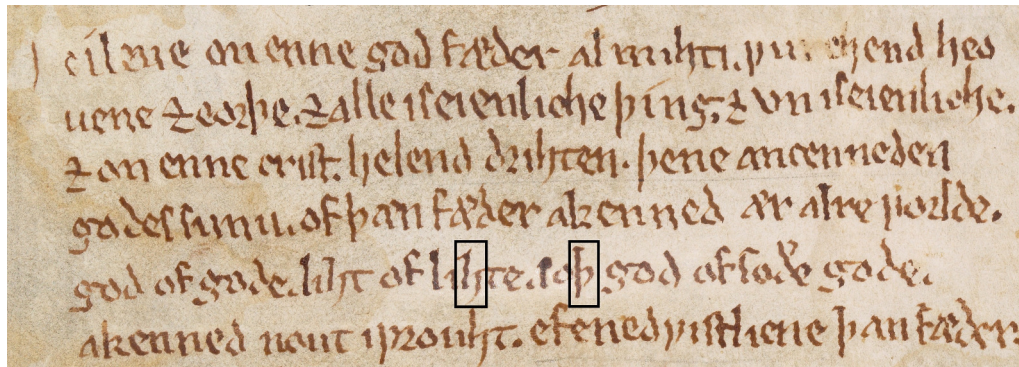 Ic ileue on enne god fæder almihti. ƿurchend heo
uene ⁊ eorþe. ⁊ alle iseienliche þing. ⁊ vniseienliche.
⁊ on enne crist. helend drihten. þene ancenneden
godes sunu. of þan fæder akenned ær alre ƿorlde.
god of gode. liht of lihte. soþ god of soðe gode.
akenned nout iƿrouht. efenedƿistliene þan fæder.